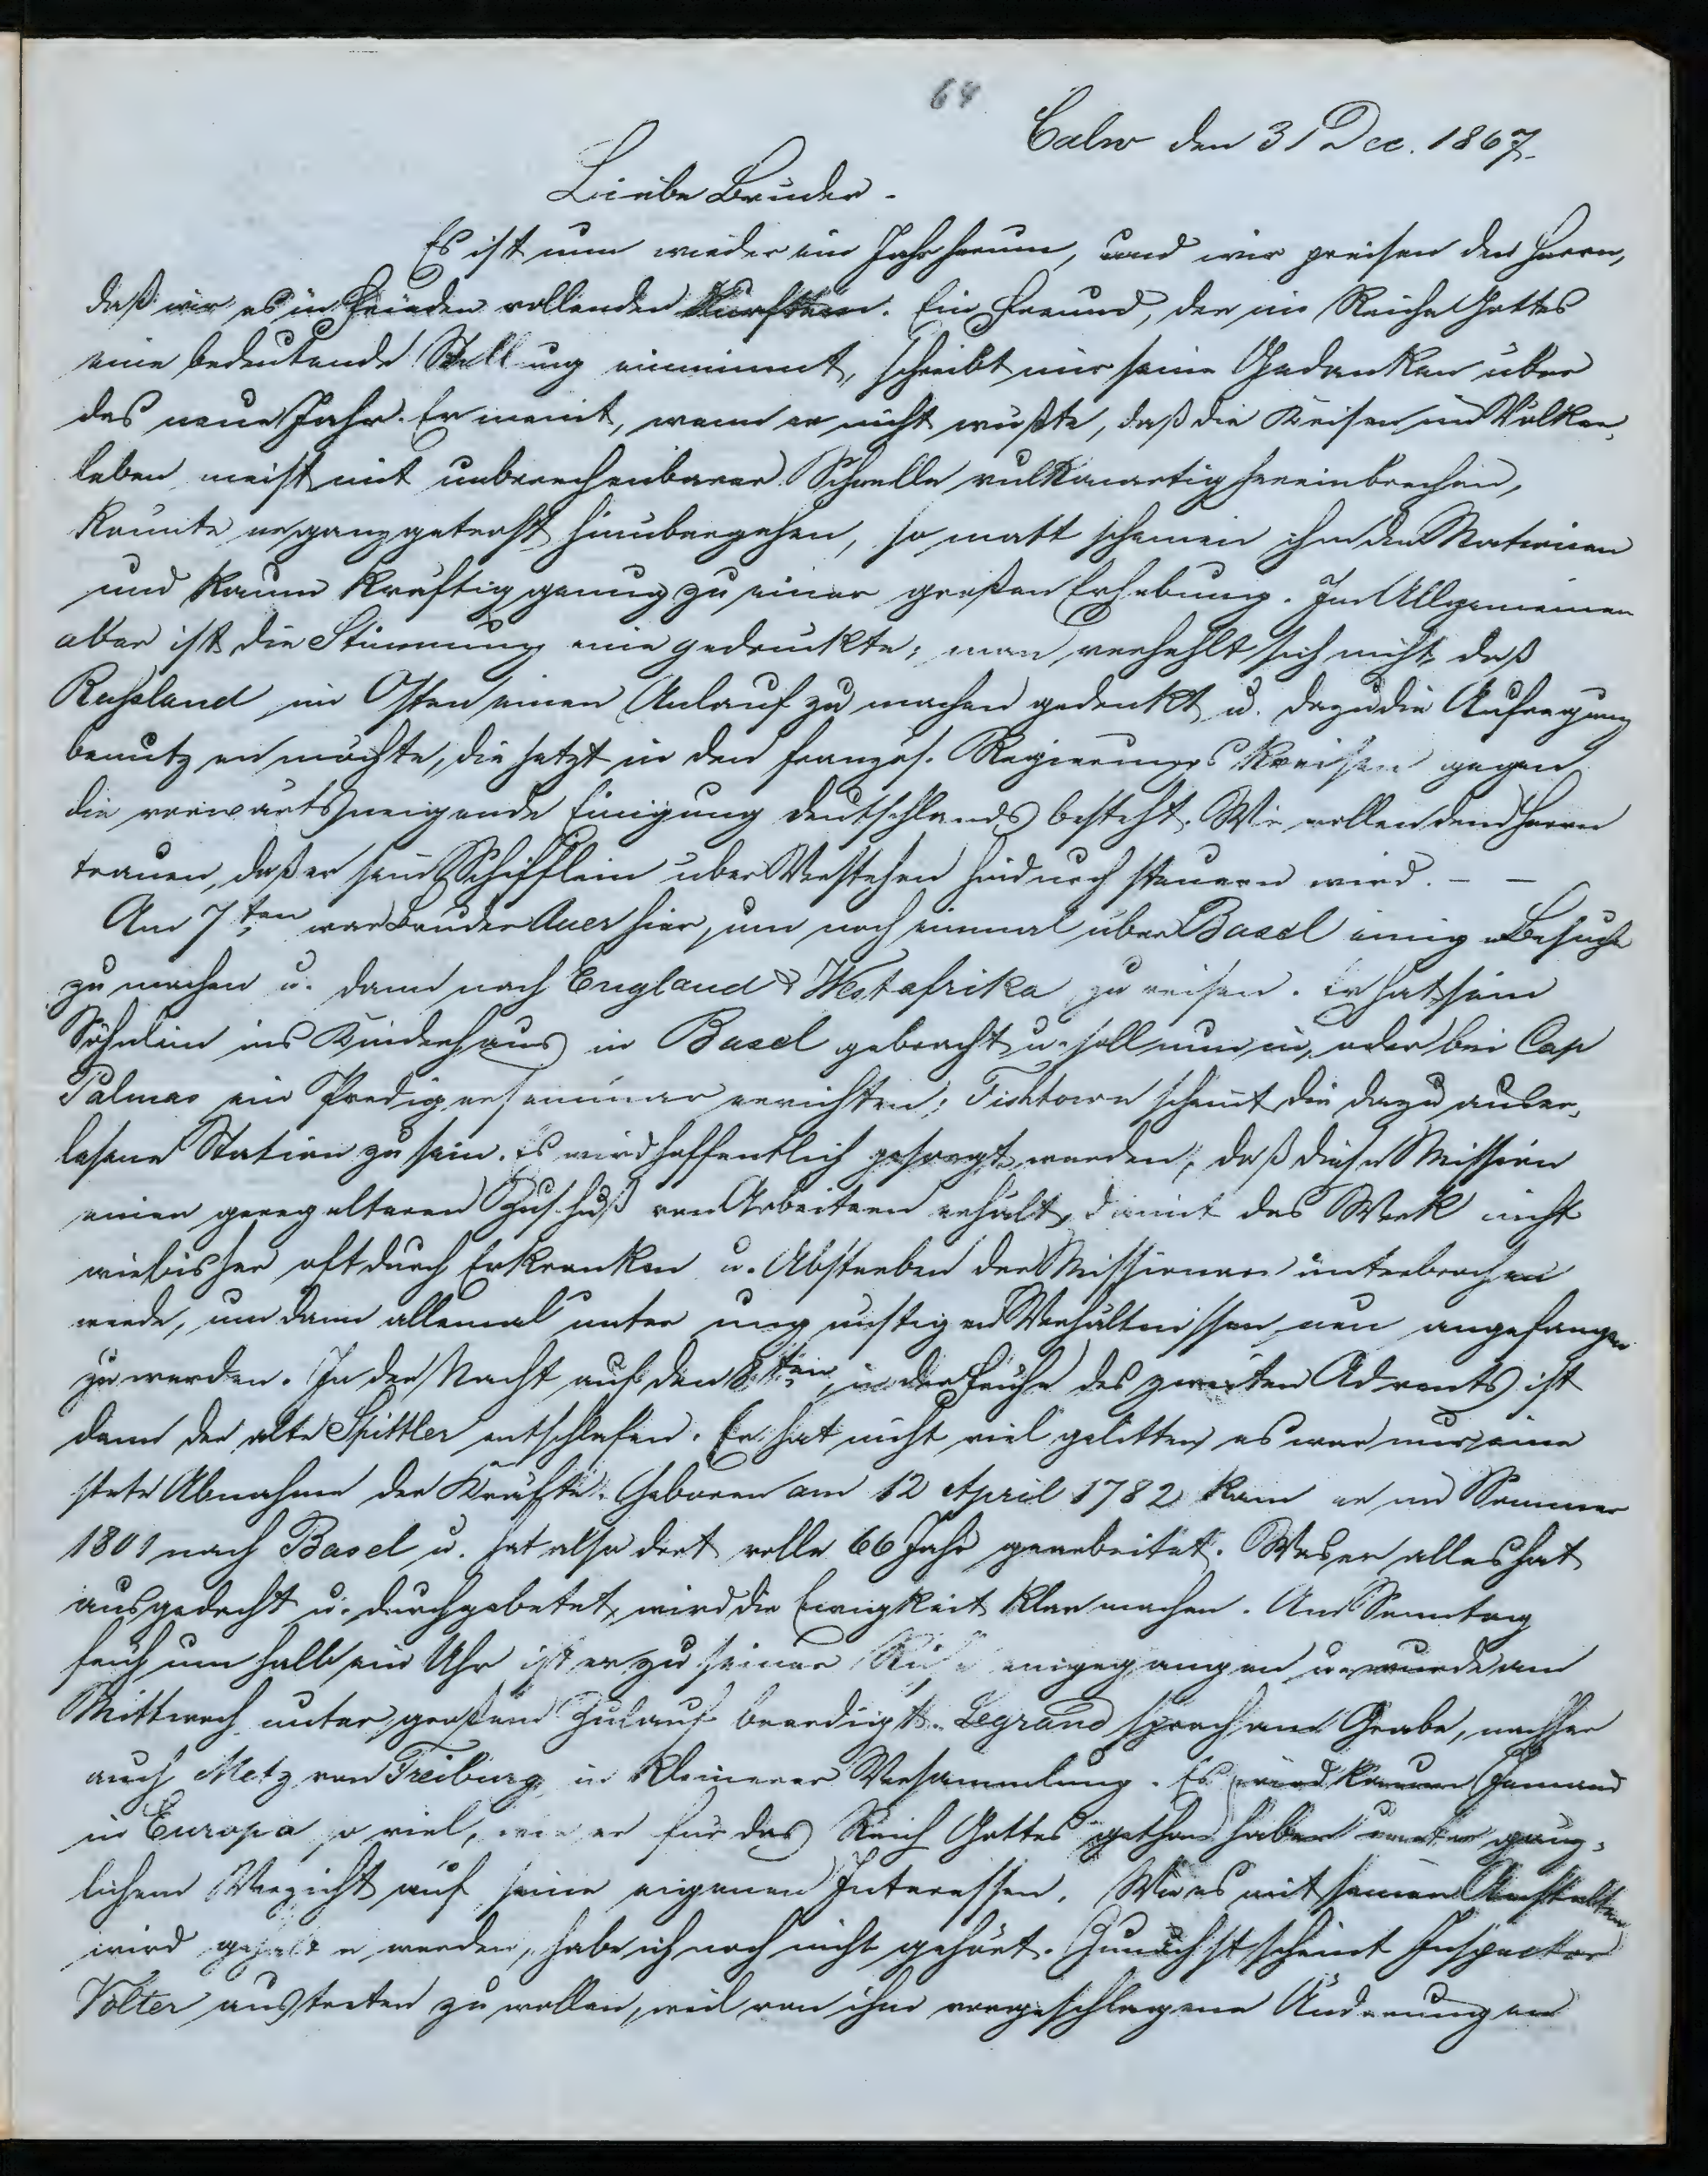 64
Calw den 31 Dec. 1867.
Liebe Brüder.
Es ist nun wieder ein Jahr herum, und wir preisen den Herrn,
daß wir es in Frieden vollenden durften. Ein Freund, der im Reiche Gottes
eine bedeutende Stellung einnimmt, schreibt mir seine Gedanken über
das neue Jahr. Er meint, wenn er nicht wüßte, daß die Krisen im Völker-
leben meist mit unberechenbarer Schnelle vulkanartig hereinbrechen,
könnte er ganz getrost hinübergehen, so matt schienen ihm die Nationen
und kaum kräftig genug zu einer großen Erhebung. Im Allgemeinen
aber ist die Stimmung eine gedrückte; man verhehlt sich nicht, daß
Russland im Osten einen Anlauf zu machen gedenkt u. dazu die Aufregung
benutzen möchte, die jetzt in den französ. Regierungskreisen gegen
die vorwärts steigende Einigung Deutschlands besteht. Wir wollen dem Herrn
trauen, daß er sein Schifflein über Verstehen hindurch steuern wird. – –
Am 7ten war Bruder Auer hier, um noch einmal über Basel einige Besuche
zu machen u. dann nach England & Westafrika zu reisen. Er hat sein
Söhnlein ins Kinderhaus in Basel gebracht u. soll nun in, oder bei Cap
Palmas ein Predigerseminar errichten; Fishtown scheint die dazu auser-
lesene Station zu sein. Es wird hoffentlich gesorgt werden, daß diese Mission
einen geregelteren Zuschuß von Arbeitern erhält, damit das Werk nicht
wie bisher oft durch Erkranken u. Absterben der Missionare unterbrochen
werde, um dann allemal unter ungünstigen Verhältnissen neu angefangen
zu werden. In der Nacht auf den 8ten, in der Frühe des zweiten Advents ist
dann der alte Spittler entschlafen. Er hat nicht viel gelitten es war nur eine
stete Abnahme der Kräfte. Geboren am 12 April 1782 kam er im Sommer
1801 nach Basel u. hat also dort volle 66 Jahr gearbeitet. Was er alles hat
ausgedacht u. durchgebetet, wird die Ewigkeit klar machen. Am Sonntag
früh um halb ein Uhr ist er zu seiner Ruhe eingegangen u. wurde am
Mittwoch unter großem Zulauf beerdigt. Legrand sprach am Grabe, nachher
auch Metz von Freiburg in kleinerer Versammlung. Es wird kaum Jemand
in Europa so viel, wie er für das Reich Gottes gethan haben unter gänz-
lichem Verzicht auf seine eigenen Interessen. Wie es mit seinen Anstalten
wird gehalten werden, habe ich noch nicht gehört. Zunächst scheint Inspector
Völter austreten zu wollen, weil von ihm vorgeschlagene Änderungen